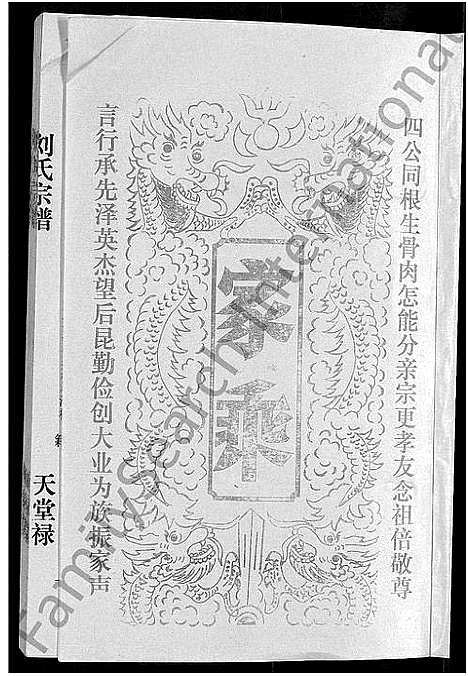 四公同根生骨肉怎能分亲宗更孝友念祖倍敬尊
家乘
言行承先泽英杰望后昆勤俭创大业为族振家声
刘氏宗谱
天堂禄
FamilySearch International